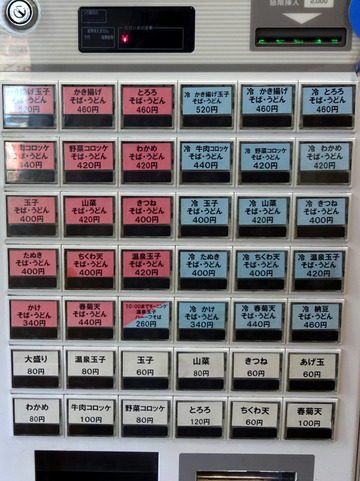 紙幣挿入
2,000
かき揚げ玉子
そば・うどん
520円
かき揚げ
そば・うどん
460円
とろろ
そば・うどん
460円
冷 かき揚げ玉子
そば・うどん
520円
冷 かき揚げ
そば・うどん
460円
冷 とろろ
そば・うどん
460円
牛肉コロッケ
そば・うどん
440円
野菜コロッケ
そば・うどん
420円
わかめ
そば・うどん
420円
冷 牛肉コロッケ
そば・うどん
440円
冷 野菜コロッケ
そば・うどん
420円
冷 わかめ
そば・うどん
420円
玉子
そば・うどん
400円
山菜
そば・うどん
420円
きつね
そば・うどん
400円
冷 玉子
そば・うどん
400円
冷 山菜
そば・うどん
420円
冷 きつね
そば・うどん
400円
たぬき
そば・うどん
400円
ちくわ天
そば・うどん
400円
温泉玉子
そば・うどん
420円
冷 たぬき
そば・うどん
400円
冷 ちくわ天
そば・うどん
400円
冷 温泉玉子
そば・うどん
420円
かけ
そば・うどん
340円
春菊天
そば・うどん
440円
10:00までモーニング
温泉玉子
ハーフそば
260円
冷 かけ
そば・うどん
340円
冷 春菊天
そば・うどん
440円
冷 納豆
そば・うどん
460円
大盛り
80円
温泉玉子
80円
玉子
60円
山菜
80円
きつね
60円
あげ玉
60円
わかめ
80円
牛肉コロッケ
100円
野菜コロッケ
80円
とろろ
120円
ちくわ天
60円
春菊天
100円